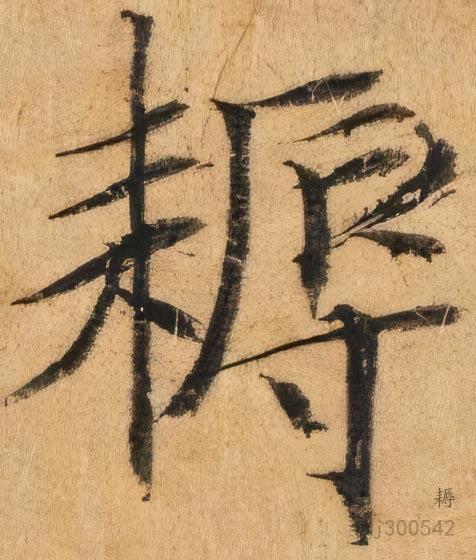 耨
耨
j300542